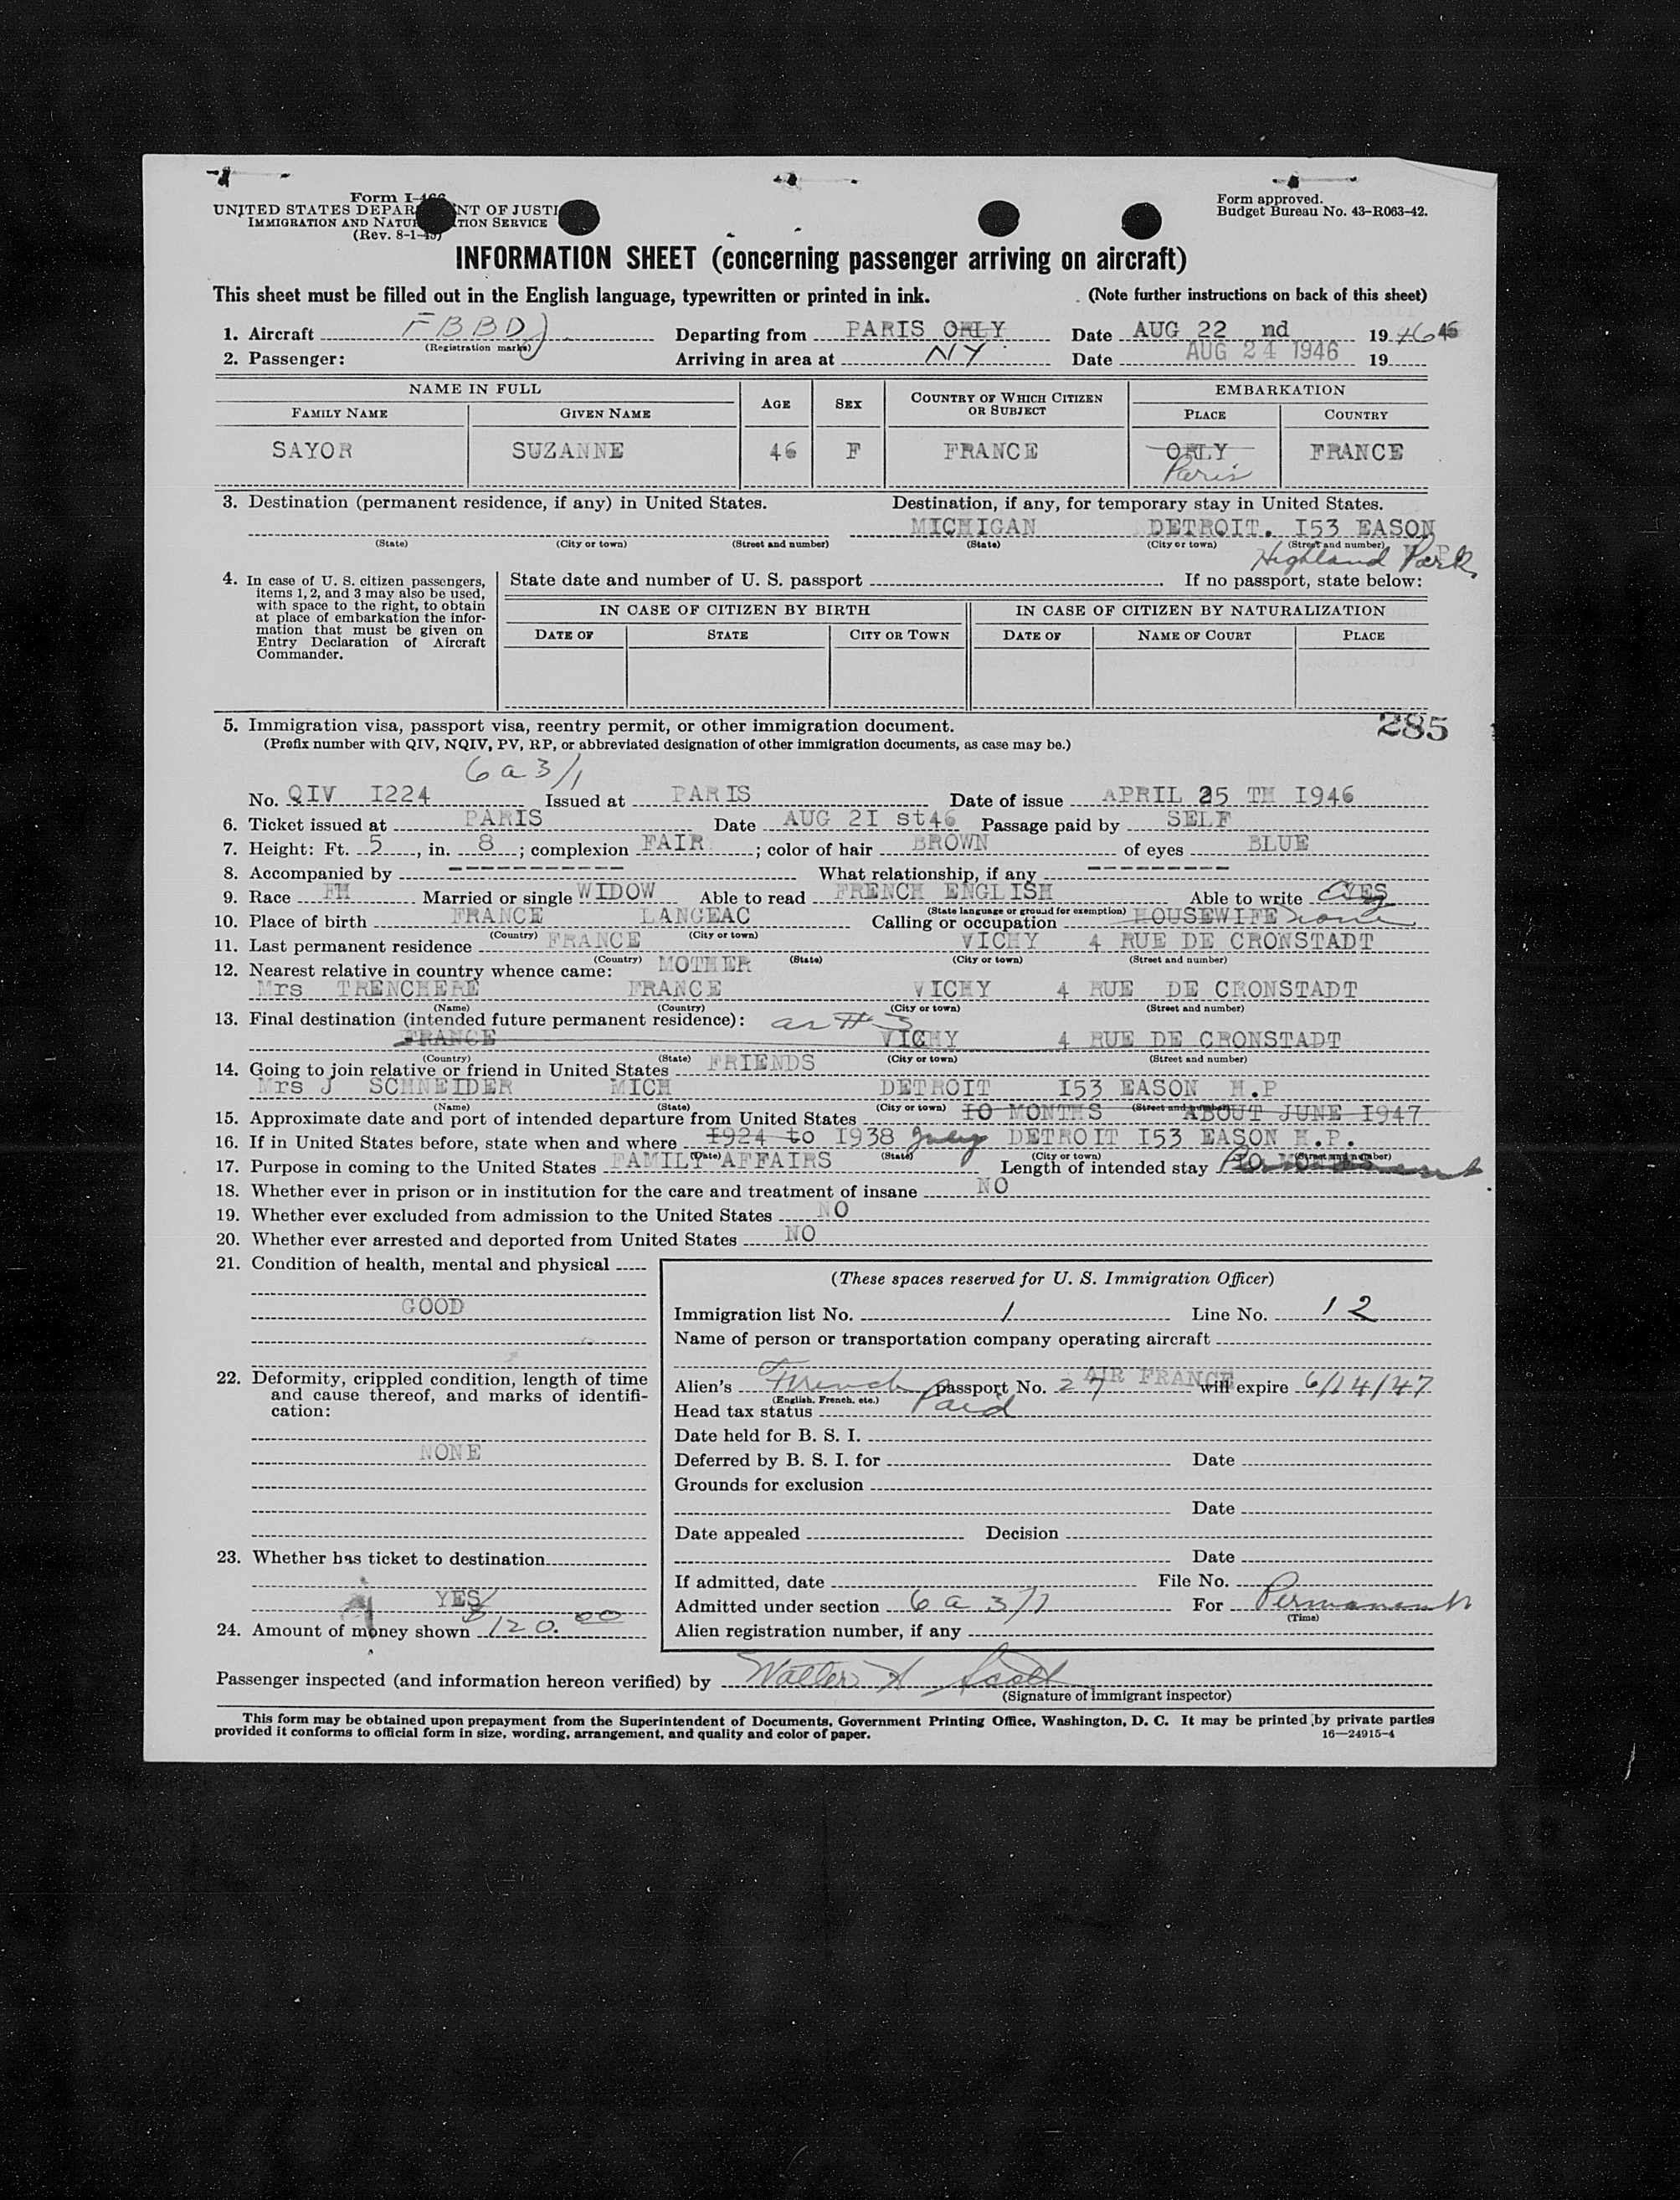 Form I-466
UNITED STATES DEPARTMENT OF JUSTICE
IMMIGRATION AND NATURALIZATION SERVICE
(Rev. 8-1-45)
Form approved.
Budget Bureau No. 43-R063-42.
INFORMATION SHEET (concerning passenger arriving on aircraft)
This sheet must be filled out in the English language, typewritten or printed in ink. (Note further instructions on back of this sheet)
1. Aircraft FBBDJ Departing from PARIS ORLY Date AUG 22 nd 1946 46
(Registration marks)
2. Passenger: Arriving in area at NY Date AUG 24 1946 19
NAME IN FULL AGE SEX COUNTRY OF WHICH CITIZEN OR SUBJECT EMBARKATION
FAMILY NAME GIVEN NAME PLACE COUNTRY
SAYOR SUZANNE 46 F FRANCE ORLY FRANCE
Paris
3. Destination (permanent residence, if any) in United States. Destination, if any, for temporary stay in United States.
MICHIGAN DETROIT. I53 EASON
(State) (City or town) (Street and number) (State) (City or town) (Street and number) H.P.
Highland Park
4. In case of U. S. citizen passengers, items 1, 2, and 3 may also be used, with space to the right, to obtain at place of embarkation the information that must be given on Entry Declaration of Aircraft Commander.
State date and number of U. S. passport If no passport, state below:
IN CASE OF CITIZEN BY BIRTH IN CASE OF CITIZEN BY NATURALIZATION
DATE OF STATE CITY OR TOWN DATE OF NAME OF COURT PLACE
5. Immigration visa, passport visa, reentry permit, or other immigration document. 285
(Prefix number with QIV, NQIV, PV, RP, or abbreviated designation of other immigration documents, as case may be.)
6 a 3/1
No. QIV I224 Issued at PARIS Date of issue APRIL 25 TH I946
6. Ticket issued at PARIS Date AUG 2I st 46 Passage paid by SELF
7. Height: Ft. 5, in. 8; complexion FAIR; color of hair BROWN of eyes BLUE
8. Accompanied by ---------- What relationship, if any --------
9. Race FH Married or single WIDOW Able to read FRENCH ENGLISH Able to write YES
(State language or ground for exemption)
10. Place of birth FRANCE LANGEAC Calling or occupation HOUSEWIFE none
(Country) (City or town)
11. Last permanent residence FRANCE VICHY 4 RUE DE CRONSTADT
(Country) (State) (City or town) (Street and number)
12. Nearest relative in country whence came: MOTHER
Mrs TRENCHERE FRANCE VICHY 4 RUE DE CRONSTADT
(Name) (Country) (City or town) (Street and number)
13. Final destination (intended future permanent residence): as # 3
FRANCE VICHY 4 RUE DE CRONSTADT
(Country) (State) (City or town) (Street and number)
14. Going to join relative or friend in United States FRIENDS
Mrs J SCHNEIDER MICH DETROIT I53 EASON H.P
(Name) (State) (City or town) (Street and number)
15. Approximate date and port of intended departure from United States IO MONTHS ABOUT JUNE I947
16. If in United States before, state when and where I924 to I938 July DETROIT I53 EASON H.P.
(Date) (State) (City or town) (Street and number)
17. Purpose in coming to the United States FAMILY AFFAIRS Length of intended stay Permanent
18. Whether ever in prison or in institution for the care and treatment of insane NO
19. Whether ever excluded from admission to the United States NO
20. Whether ever arrested and deported from United States NO
21. Condition of health, mental and physical
GOOD
22. Deformity, crippled condition, length of time and cause thereof, and marks of identification:
NONE
23. Whether has ticket to destination
YES
24. Amount of money shown $120.00
(These spaces reserved for U. S. Immigration Officer)
Immigration list No. 1 Line No. 12
Name of person or transportation company operating aircraft
AIR FRANCE
Alien's French passport No. 27 will expire 6/14/47
(English, French, etc.)
Head tax status Paid
Date held for B. S. I.
Deferred by B. S. I. for Date
Grounds for exclusion
Date
Date appealed Decision
Date
If admitted, date File No.
Admitted under section 6 a 3/1 For Permanent
(Time)
Alien registration number, if any
Passenger inspected (and information hereon verified) by Walter A Scott
(Signature of immigrant inspector)
This form may be obtained upon prepayment from the Superintendent of Documents, Government Printing Office, Washington, D. C. It may be printed by private parties
provided it conforms to official form in size, wording, arrangement, and quality and color of paper. 16—24915-4